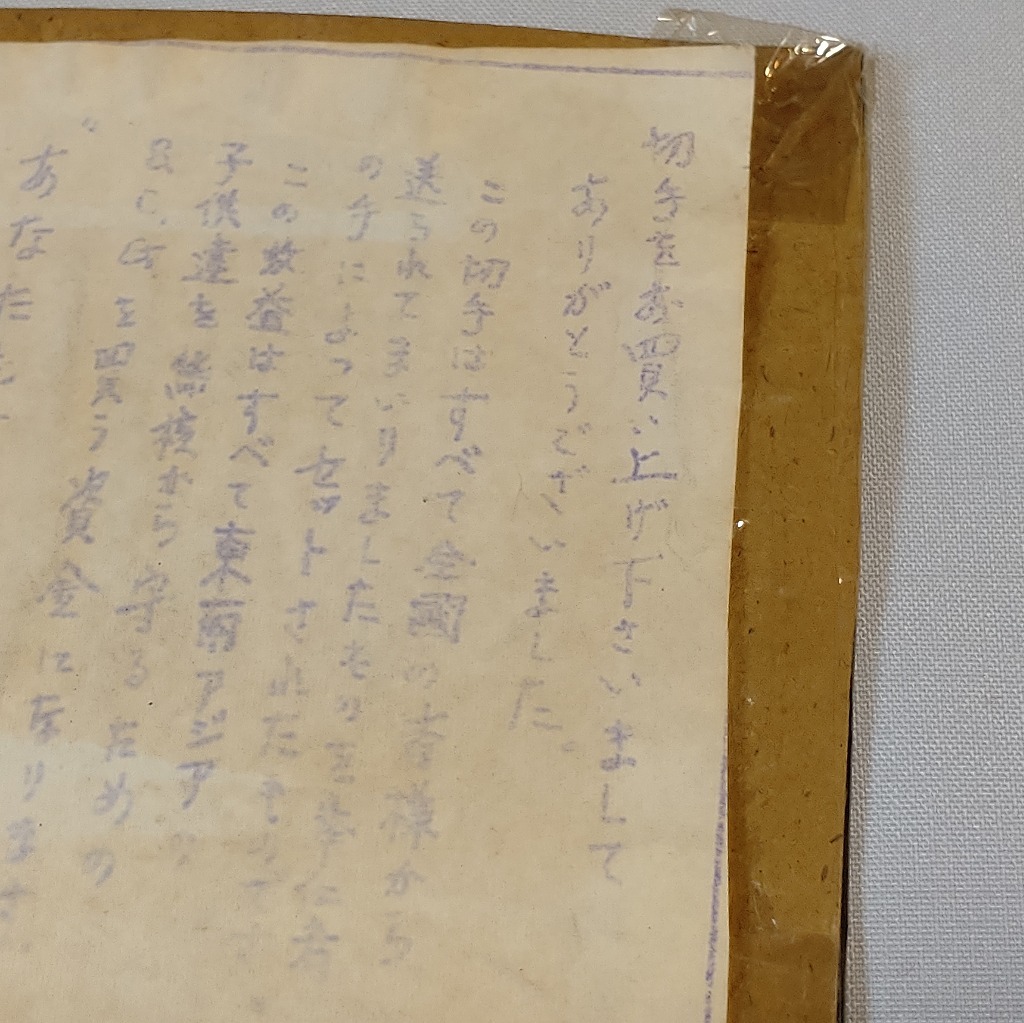 切手をお買い上げ下さいまして
ありがとうございました。
この切手はすべて全国の皆様から
送られてまいりましたもの
の手によってセットされたもので
この收益はすべて東南アジアの
子供達を結核から守るための
B.C.Gを買う資金になります
あなた